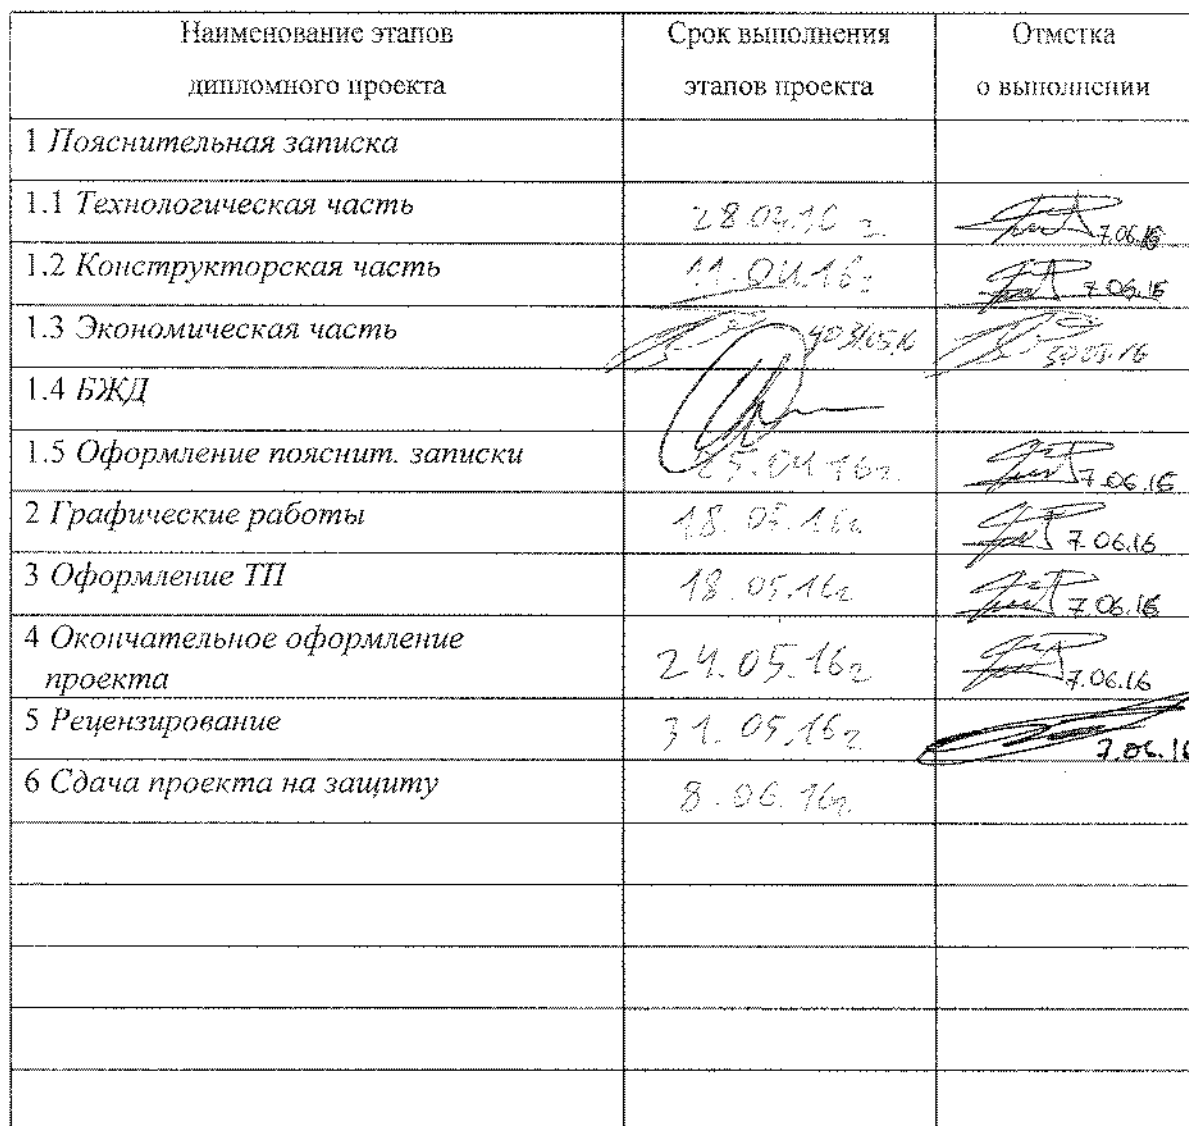 Наименование этапов
дипломного проекта
Срок выполнения
этапов проекта
Отметка
о выполнении
1 Пояснительная записка
1.1 Технологическая часть
7.06.16
1.2 Конструкторская часть
11.04.16г
7.06.16
1.3 Экономическая часть
30.05.16
1.4 БЖД
1.5 Оформление пояснит. записки
25.04.16г.
7.06.16
2 Графические работы
18.05.16г
7.06.16
3 Оформление ТП
18.05.16г
7.06.16
4 Окончательное оформление
проекта
24.05.16г
7.06.16
5 Рецензирование
31.05.16г
7.06.16
6 Сдача проекта на защиту
8.06.16г.